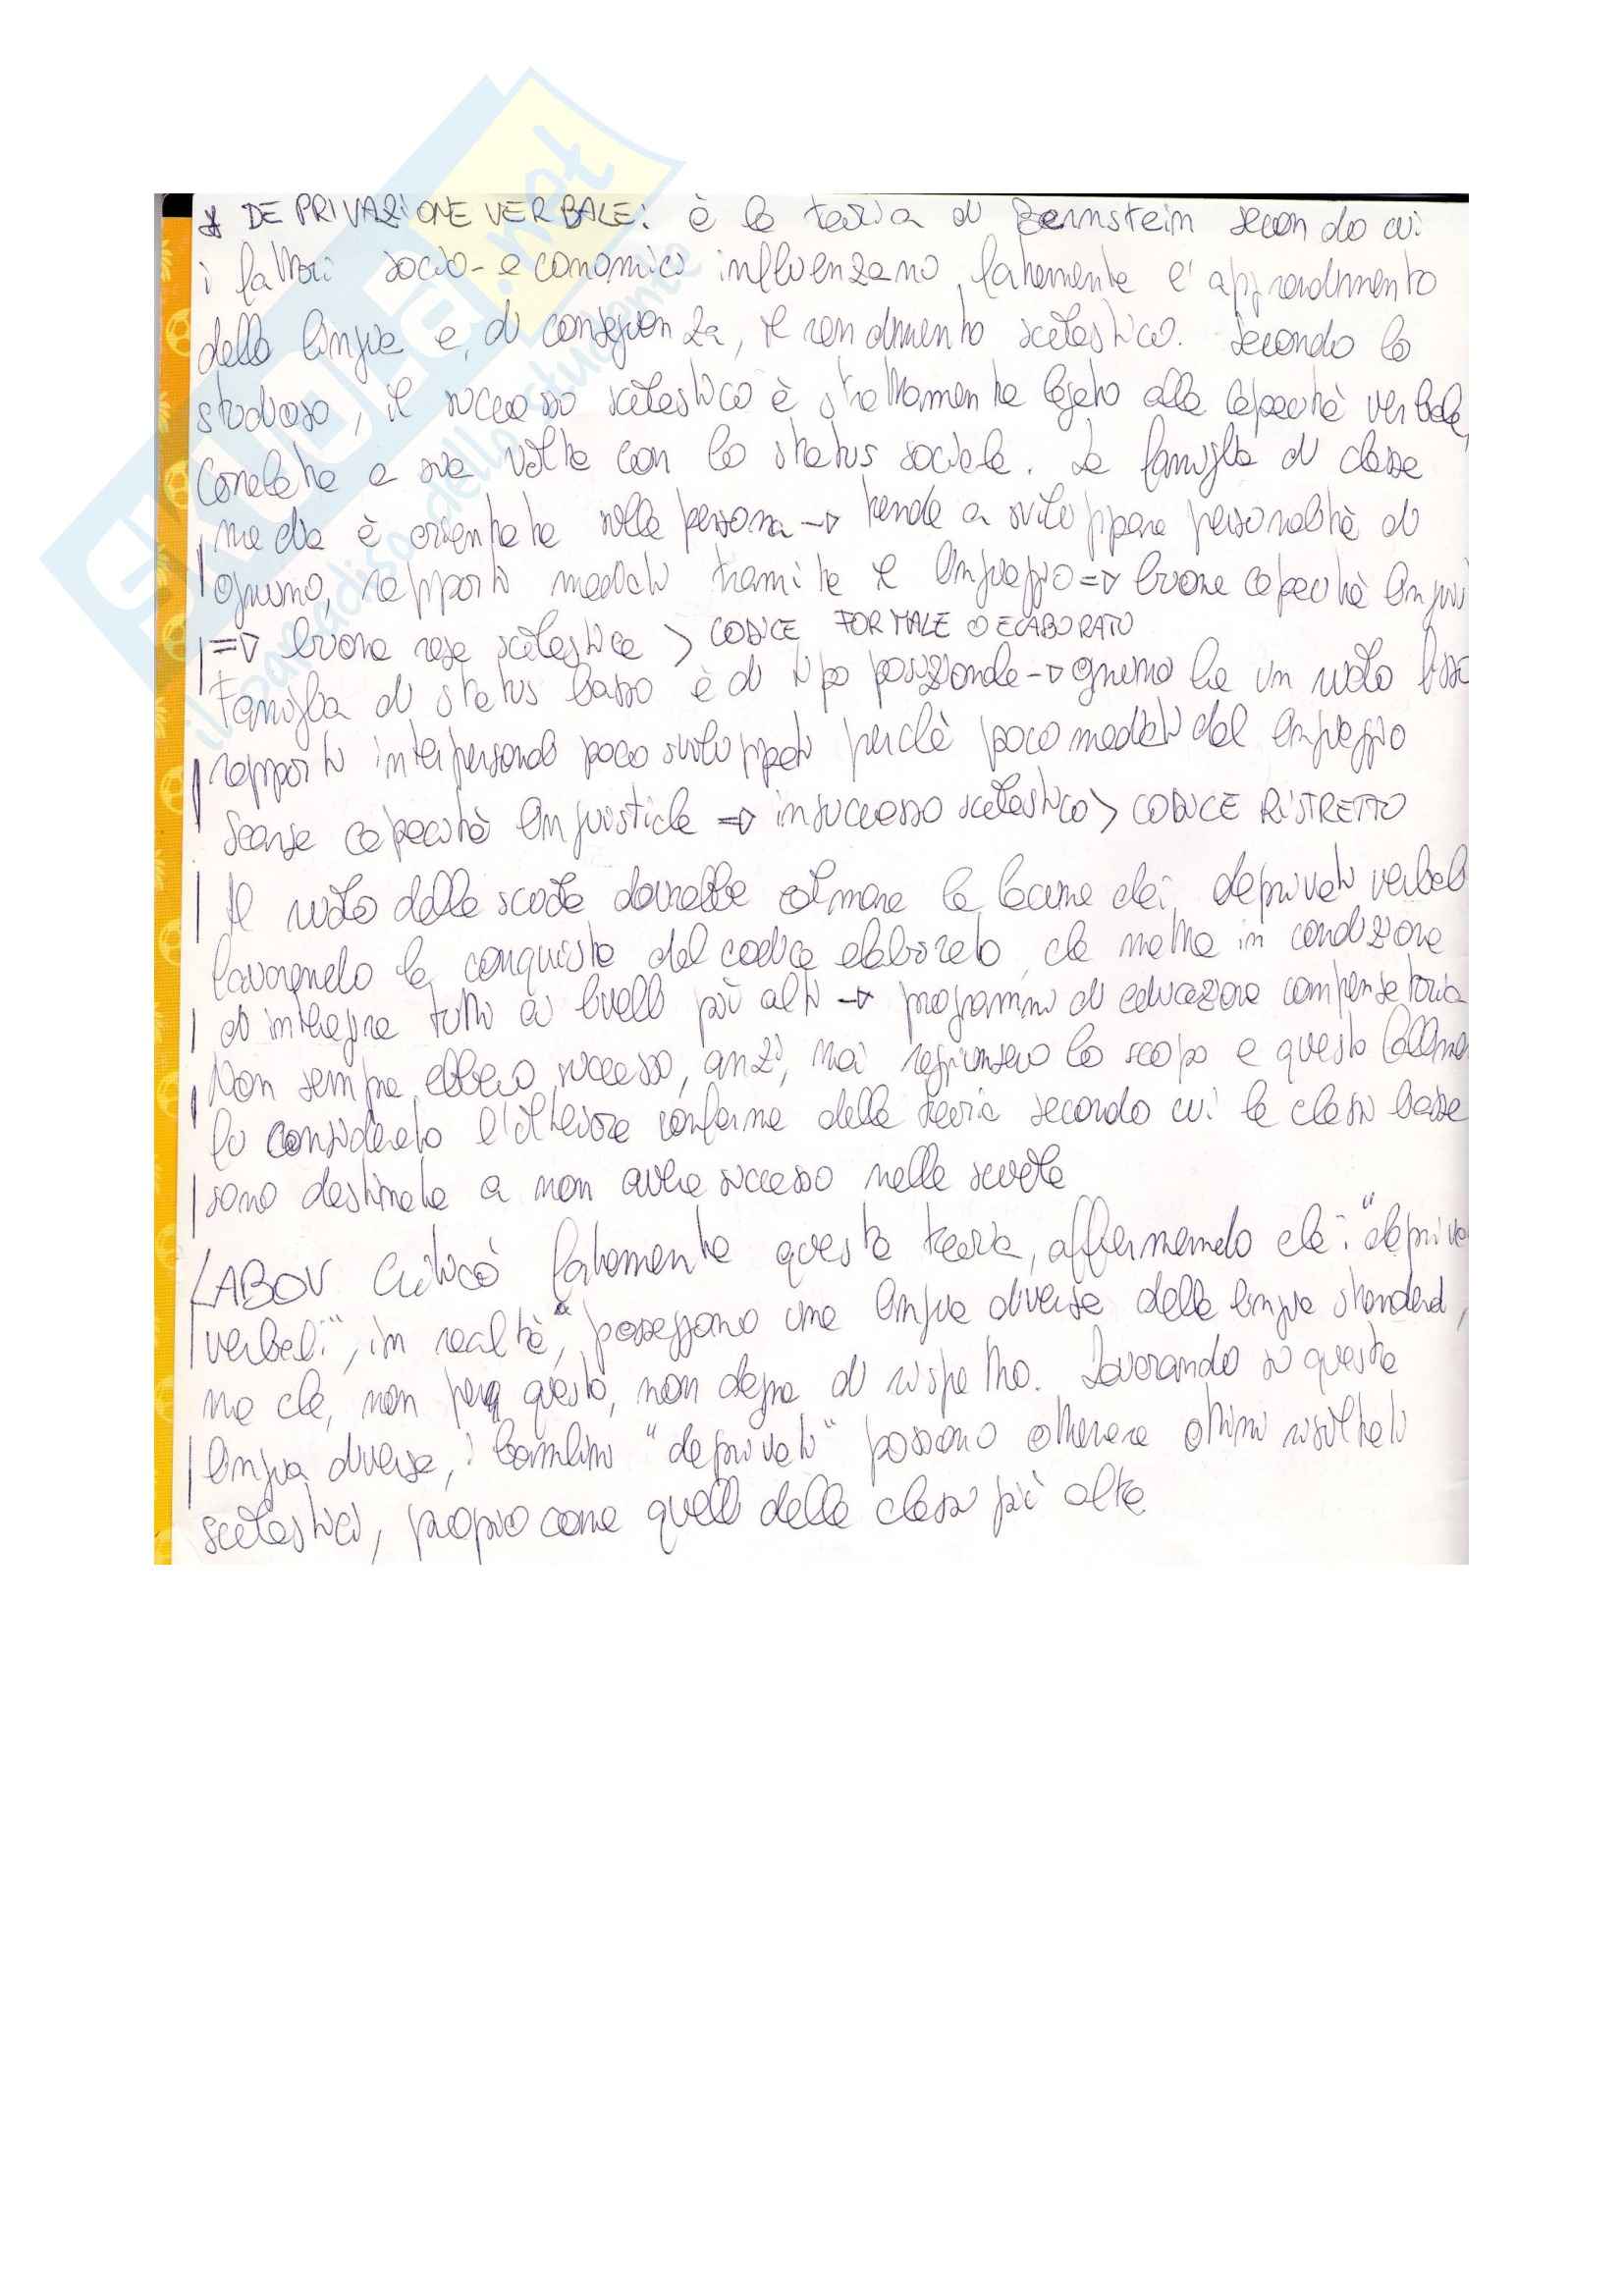 * DEPRIVAZIONE VERBALE: è la teoria di Bernstein secondo cui
i fattori socio-economici influenzano fortemente l'apprendimento
della lingua e, di conseguenza, il rendimento scolastico. Secondo lo
studioso, il successo scolastico è strettamente legato alle capacità verbali,
correlate a sua volta con lo status sociale. La famiglia di classe
media è orientata sulla persona → tende a sviluppare personalità di
ognuno, rapporti mediati tramite il linguaggio => buone capacità lingui
=> buona resa scolastica > CODICE FORMALE O ELABORATO
Famiglia di status basso è di tipo posizionale → ognuno ha un ruolo fisso
rapporti interpersonali poco sviluppati perché poco mediati dal linguaggio
scarse capacità linguistiche => insuccesso scolastico > CODICE RISTRETTO
Il ruolo della scuola dovrebbe colmare le lacune dei deprivati verbali
favorendo la conquista del codice elaborato, che mette in condizione
di integrare tutti ai livelli più alti → programmi di educazione compensatoria
Non sempre ebbero successo, anzi, mai raggiunsero lo scopo e questo fallimen
fu considerato l'ulteriore conferma della teoria secondo cui le classi basse
sono destinate a non avere successo nelle scuole
LABOV criticò fortemente questa teoria, affermando che i "depriva
verbali", in realtà, posseggono una lingua diversa dalla lingua standard,
ma che, non per questo, non degna di rispetto. Lavorando su questa
lingua diversa, i bambini "deprivati" possono ottenere ottimi risultati
scolastici, proprio come quelli delle classi più alte
SKUOLA.net
il paradiso dello studente